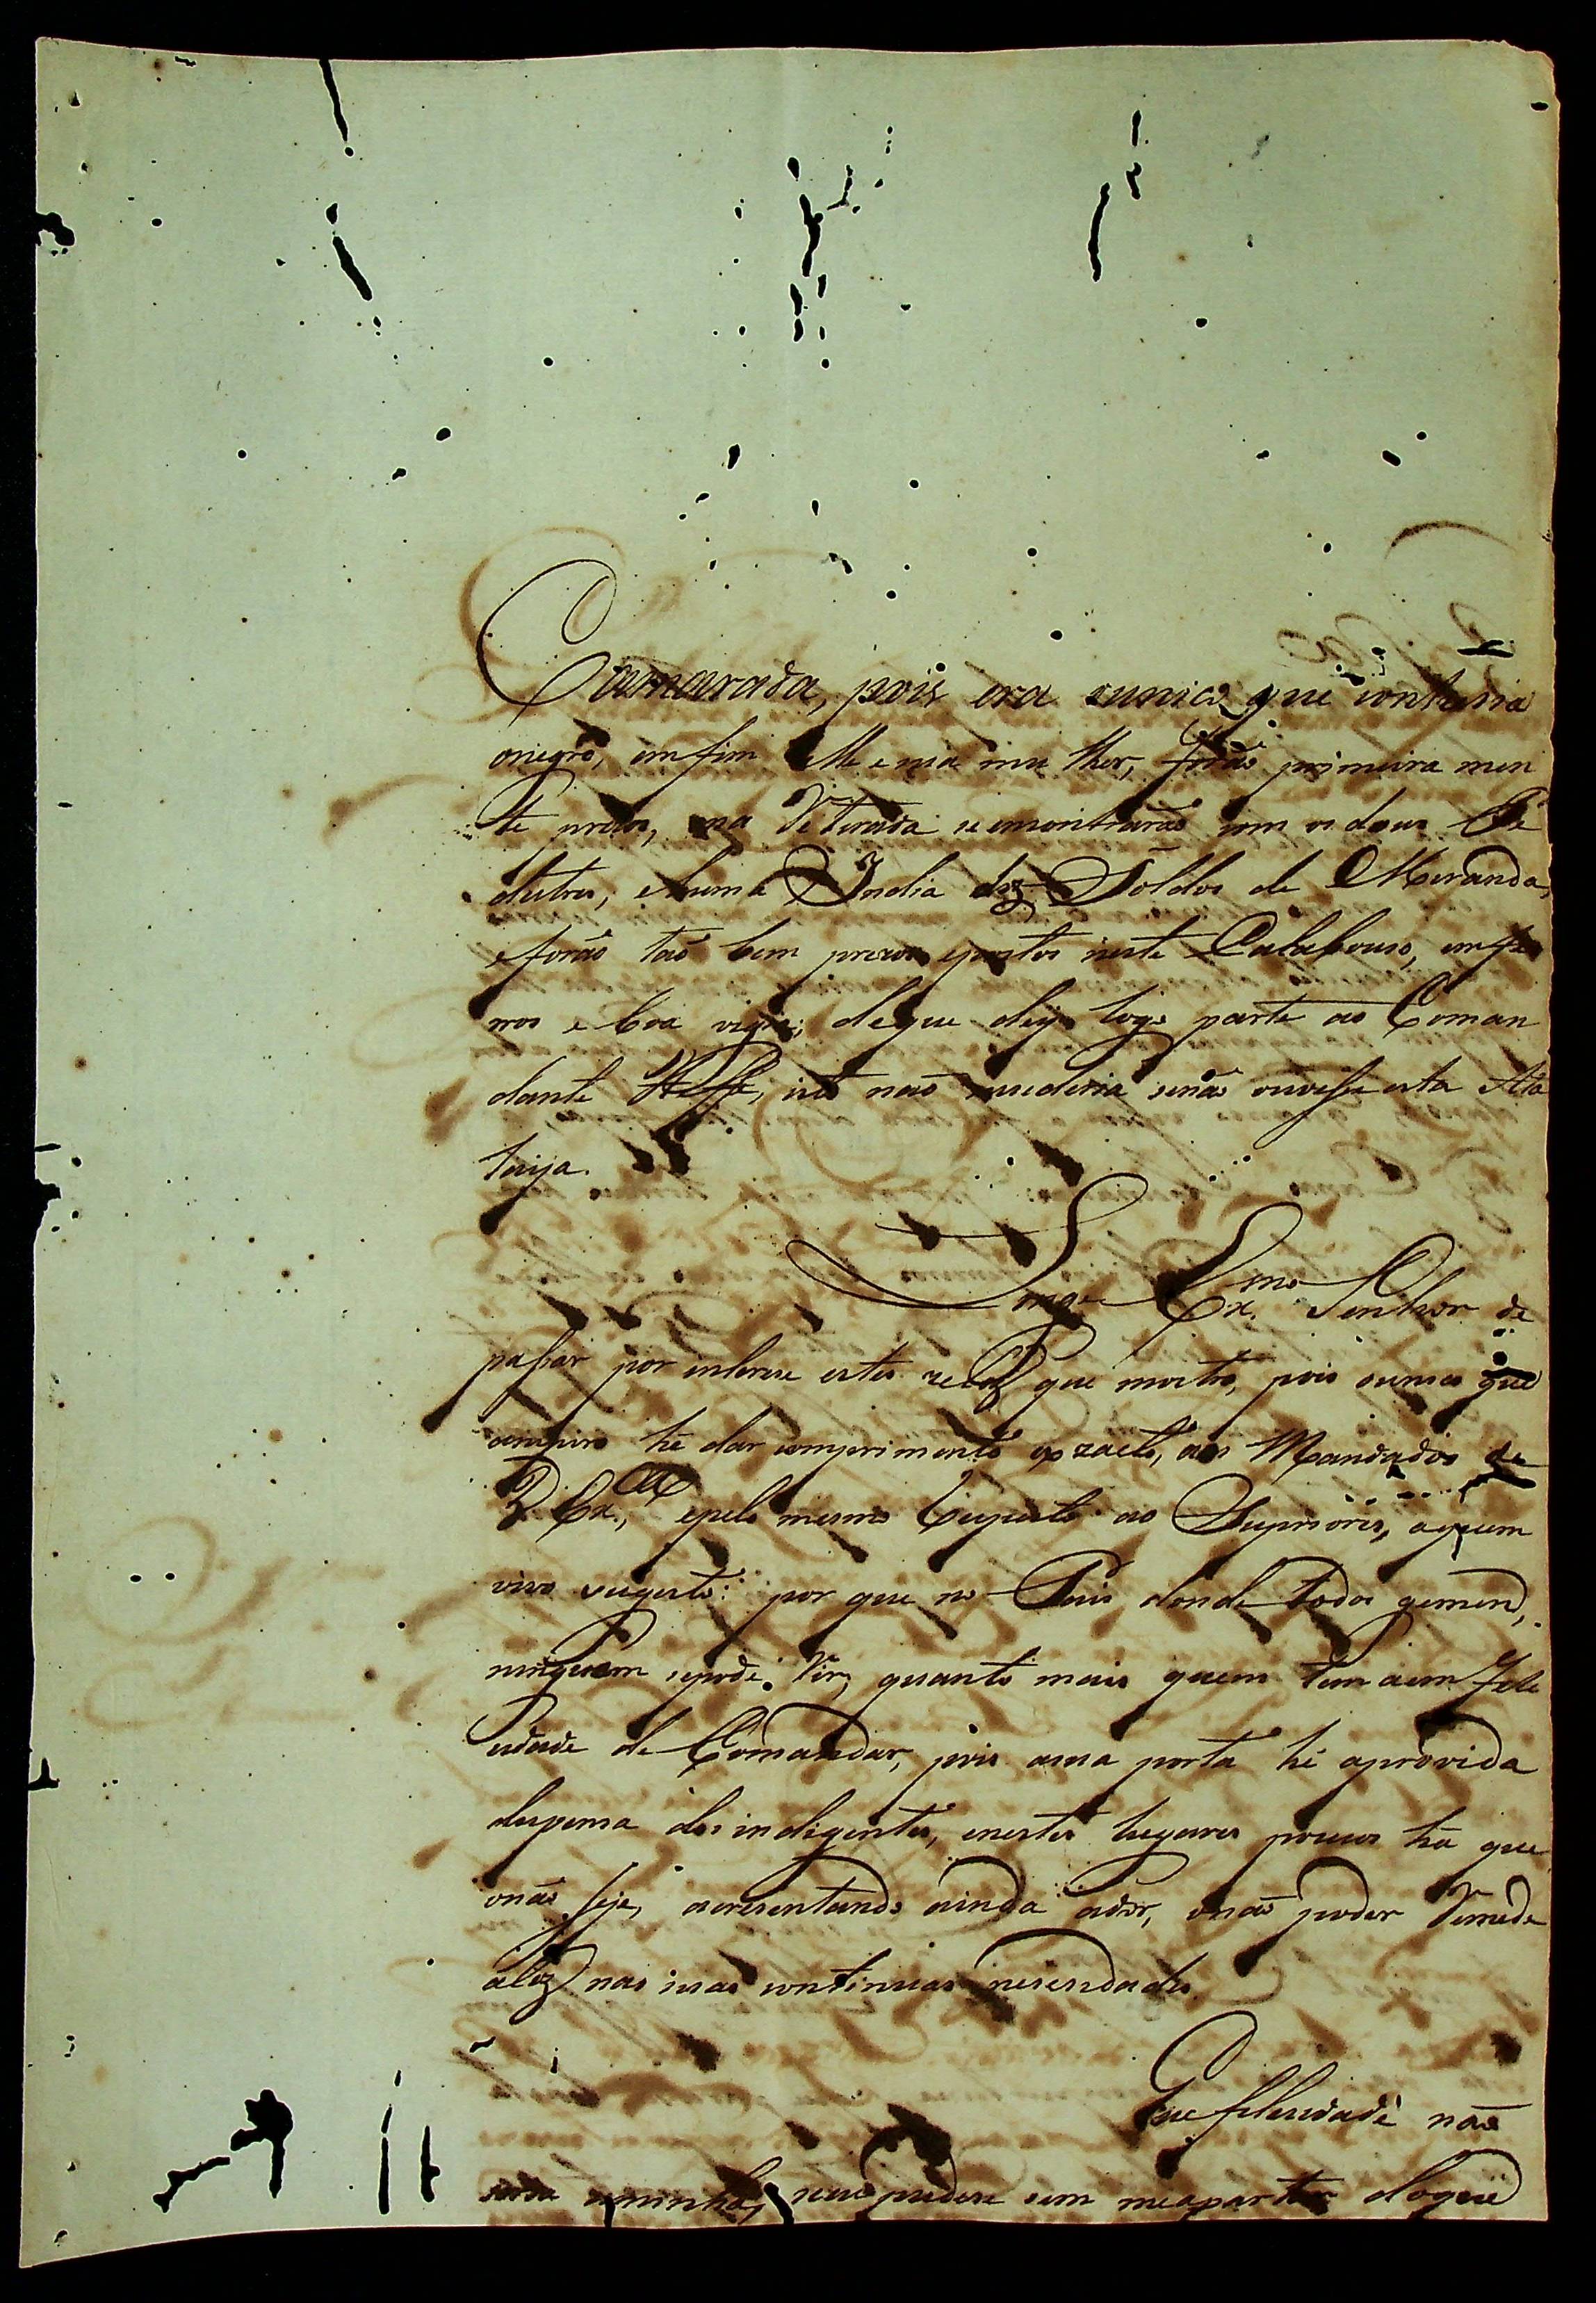 Camarada, pois era ounico que conteria
onegro, emfim elle e mia mu lher, forão primeira men
te prezos, ena Retirada se emcontrarão com os dous Pe
destres, ehuma India dos Soldos de Meranda,
eforão tão bem prezos epostos neste Calabouso, em fe
rros e boa vigia; deque dey logo parte ao Coman
dante, isto não sucederia senão ouvesse esta Ata
laya.
Longe Ex.mo Senhor de
passar por enterese estes zellos que mostro, pois ounico que
aspiro hé dar comprimento exzacto, aos Mandados de
V. Ex.ca, epelo mesmo Respeito ao Supriores, aquem
vivo sugeito: por que no Pais donde todos gemem,
ninguem sepode Rir, quanto mais quem tem aem Fele
cidade de Comandar, pois asua porta hé aprovida
despensa dos indigentes, enestes lugares poucos há que
onão seje, acresentando ainda ador, onão poder Remede
alos nas suas continuas nesesidades
Que felecidade não
seria aminha, seeu podese sem meapartar doque